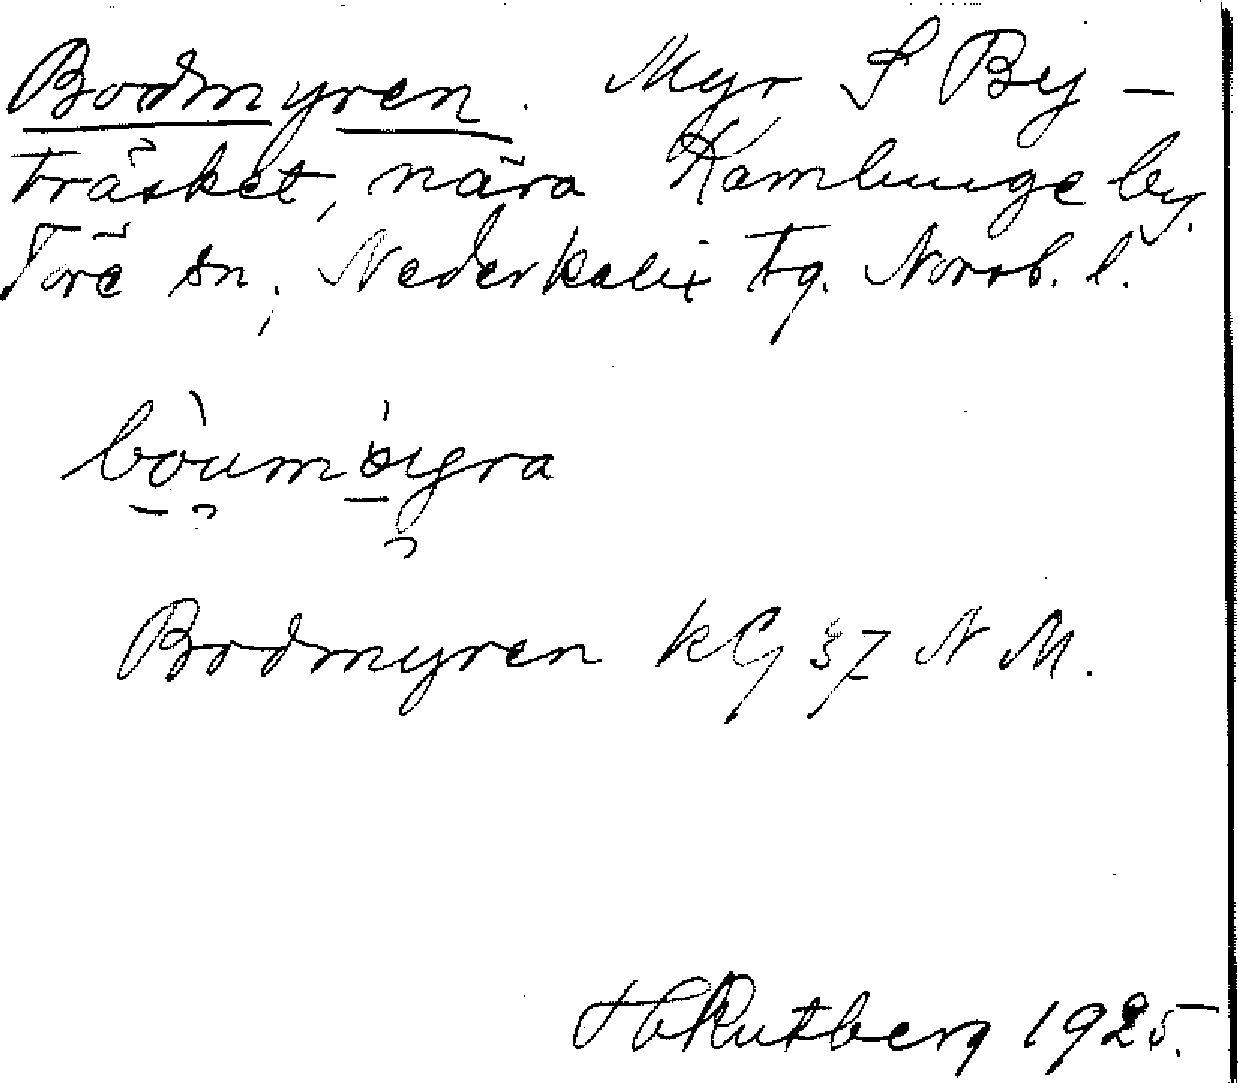 Bodmyren. Myr S By-
träsket, nära Kamlunge by.
Töre sn, Nederkalix tg. Norrb. l.
bòumöygra
Bodmyren KG 37 N M.
H Rutberg 1925.